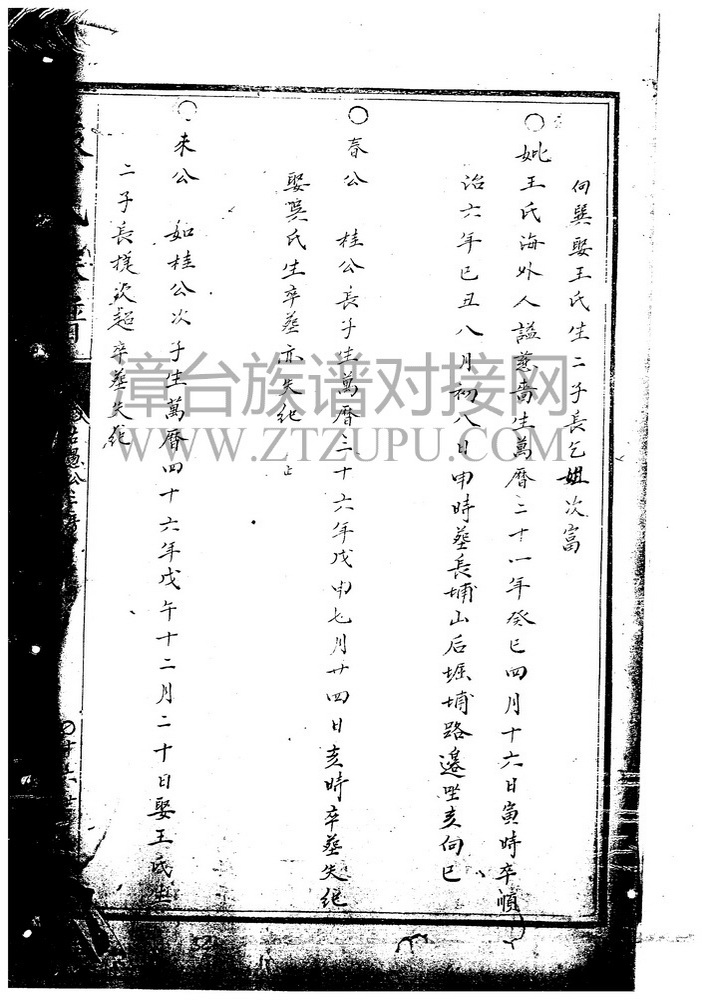 向巽娶王氏生二子長乞姐次富
○妣王氏海外人諡慈嗇生萬曆二十一年癸巳四月十六日寅時卒順
治六年己丑八月初八日申時葬長埔山后堀埔路邊坐亥向巳
○春公 桂公長子生萬曆三十六年戊申七月廿四日亥時卒葬失紀
娶吳氏生卒葬亦失紀 止
○來公 如桂公次子生萬曆四十六年戊午十二月二十日娶王氏生
二子長楳次超卒葬失紀
漳台族谱对接网
WWW.ZTZUPU.COM